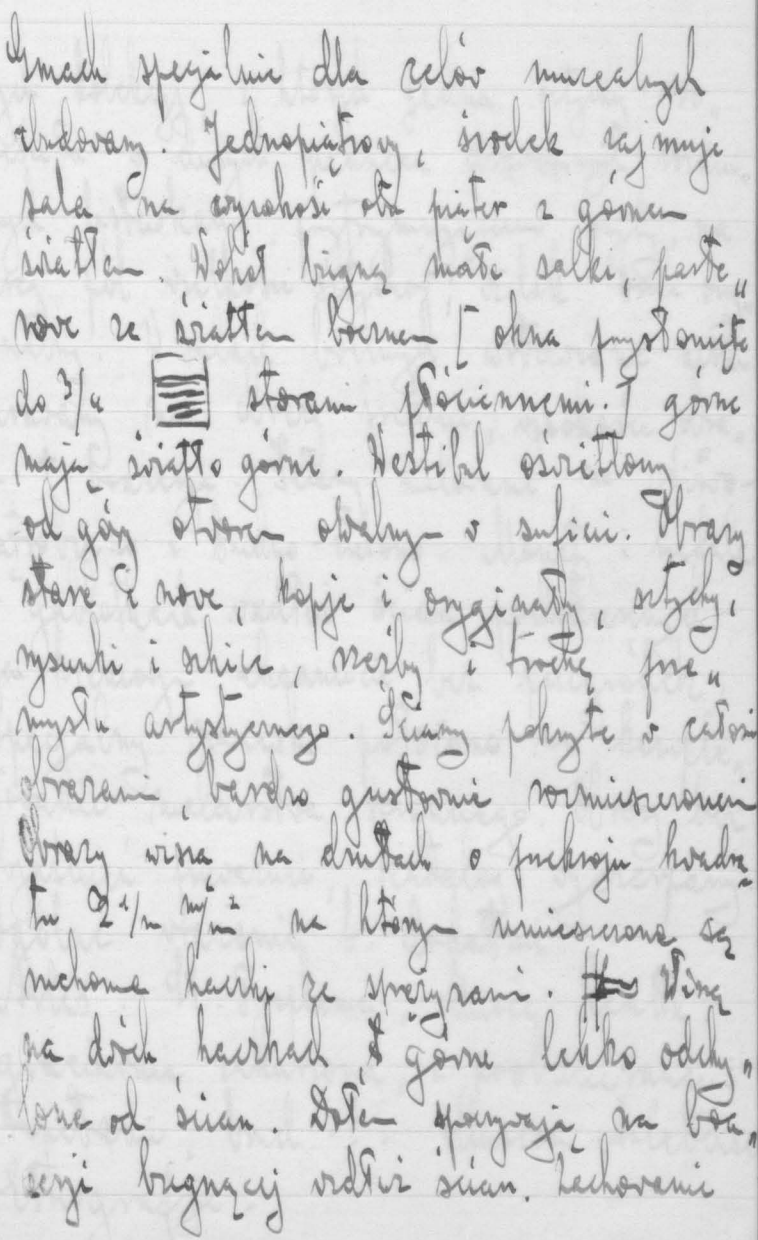 Gmach specjalnie dla celów muzealnych
zbudowany. Jednopiętrowy, środek zajmuje
sala na wysokość obu pięter z górnem
światłem. Wokół biegną małe salki, parte„
rowe ze światłem bocznem [okna przysłonięte
do 3/4 storami płóciennemi.] górne
mają światło górne. Westibul oświetlony
od góry otworem owalnym w suficie. Obrazy
stare i nowe kopje i oryginały, sztychy,
rysunki i szkice, rzeźby i trochę prze„
mysłu artystycznego. Ściany pokryte w całości
obrazami bardzo gustownie rozmieszczonemi
Obrazy wiszą na drutach o przekroju kwadra„
tu na którym umieszczone są
ruchome haczki ze sprężynami. Wiszą
na dwóch haczkach, górne lekko odchy„
lone od ścian. Dołem spoczywają na boa„
zerji biegnącej wzdłuż ścian. Zachowanie